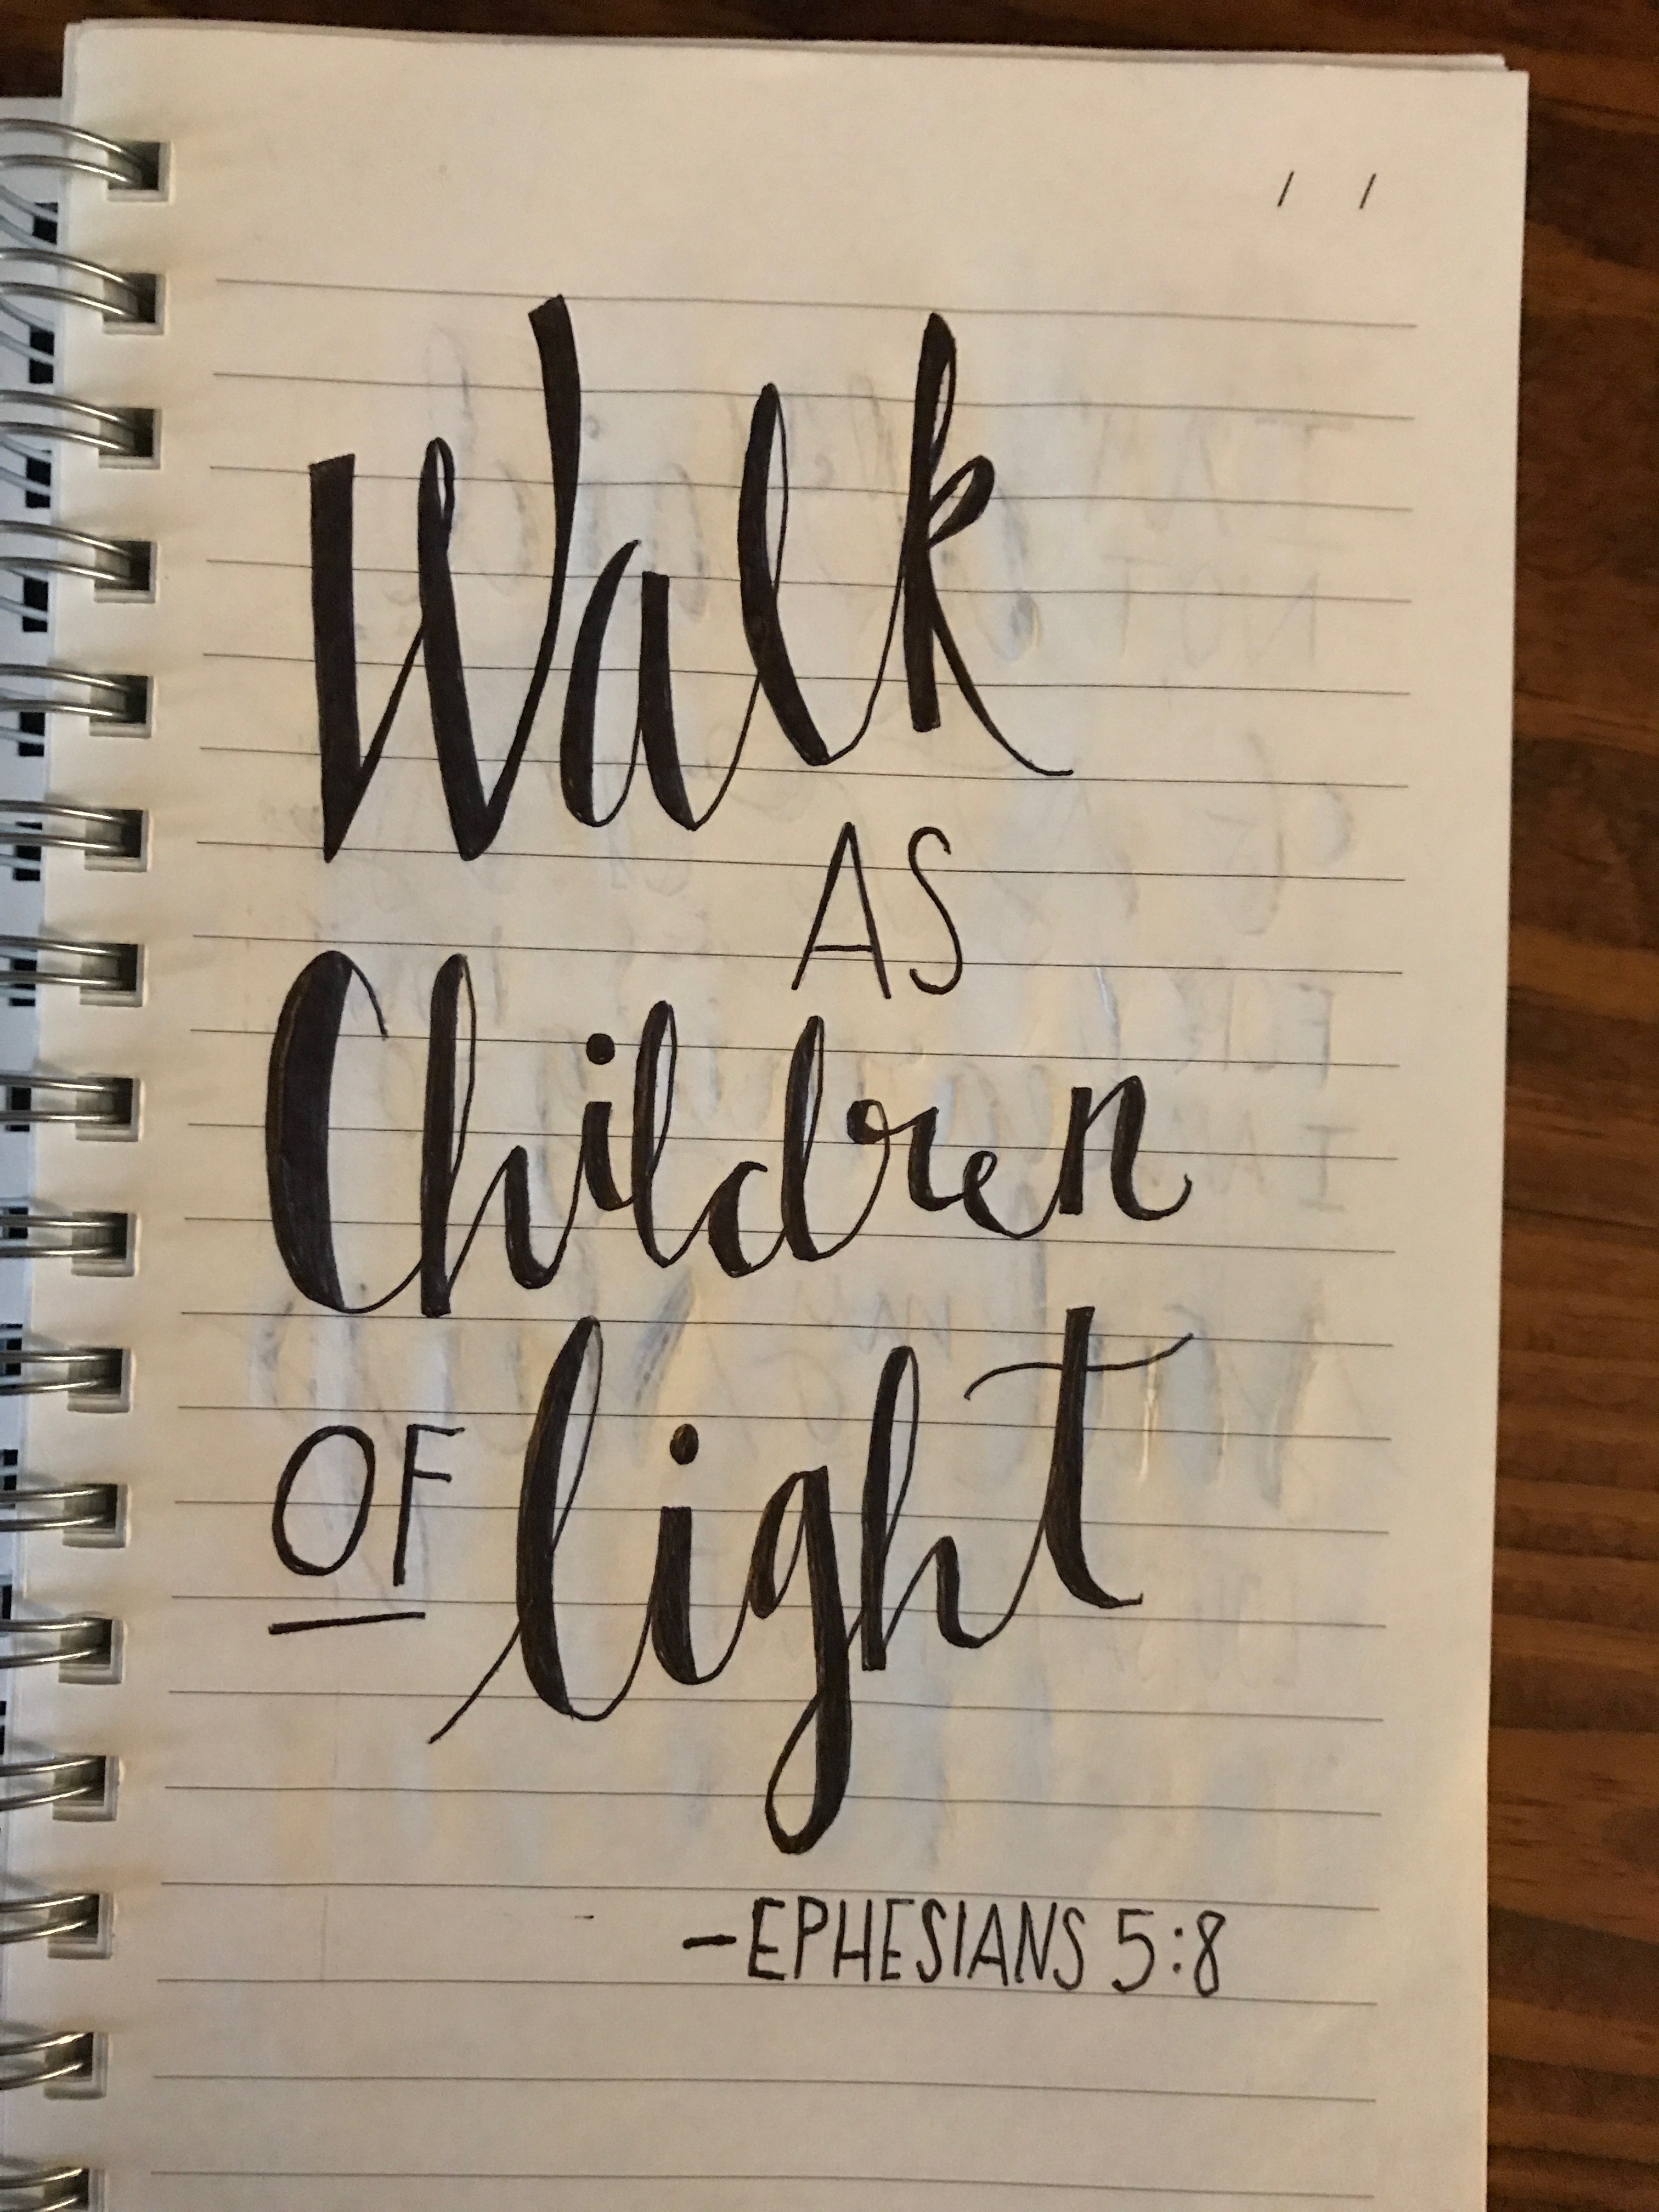 Walk
AS
Children
OF light
-EPHESIANS 5:8